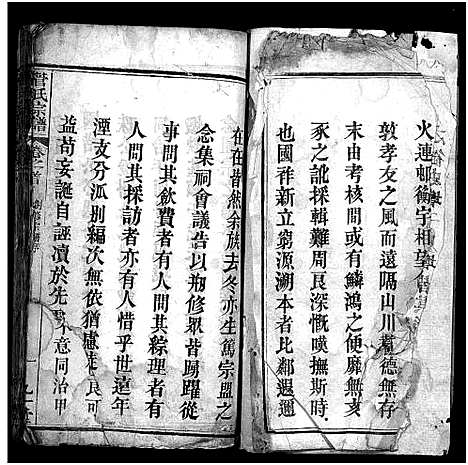 火連邨衡宇相望
敦孝友之風而遠隔山川耆德無存
末由考核間或有鱗鴻之便魚無亥
豕之訛採輯難周良深慨嘆撫斯時
也國祚新立窮源溯本者比鄰遐邇
在在皆然余族去冬亦生篤宗盟之
念集祠會議告以刱修眾皆踴躍從
事問其歛費者有人問其綜理者有
人問其採訪者亦有人惜乎世遠年
湮支分派別編次無依猶慮
民可
益苟妄誕自誣瀆於先
意同治甲
宗譜
卷之首